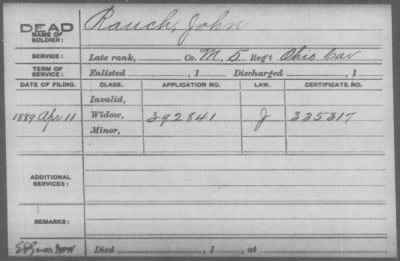 DEAD Rauch, John
NAME OF SOLDIER:
SERVICE: Late rank, Co. M. 5 Reg't Ohio Cav
TERM OF SERVICE: Enlisted , 1 Discharged , 1
DATE OF FILING. CLASS. APPLICATION NO. LAW. CERTIFICATE NO.
Invalid,
1889 Apr 11 Widow, 392841 J 335317
Minor,
ADDITIONAL SERVICES:
REMARKS:
Died , 1 , at